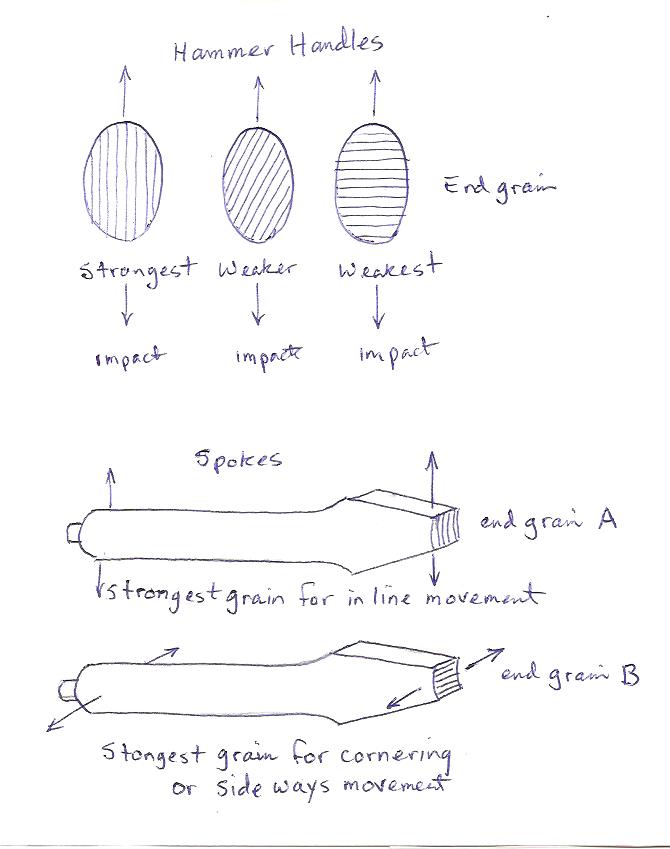 Hammer Handles
End grain
Strongest Weaker Weakest
impact impact impact
Spokes
end grain A
Strongest grain for in line movement
end grain B
Stongest grain for cornering
or side ways movement